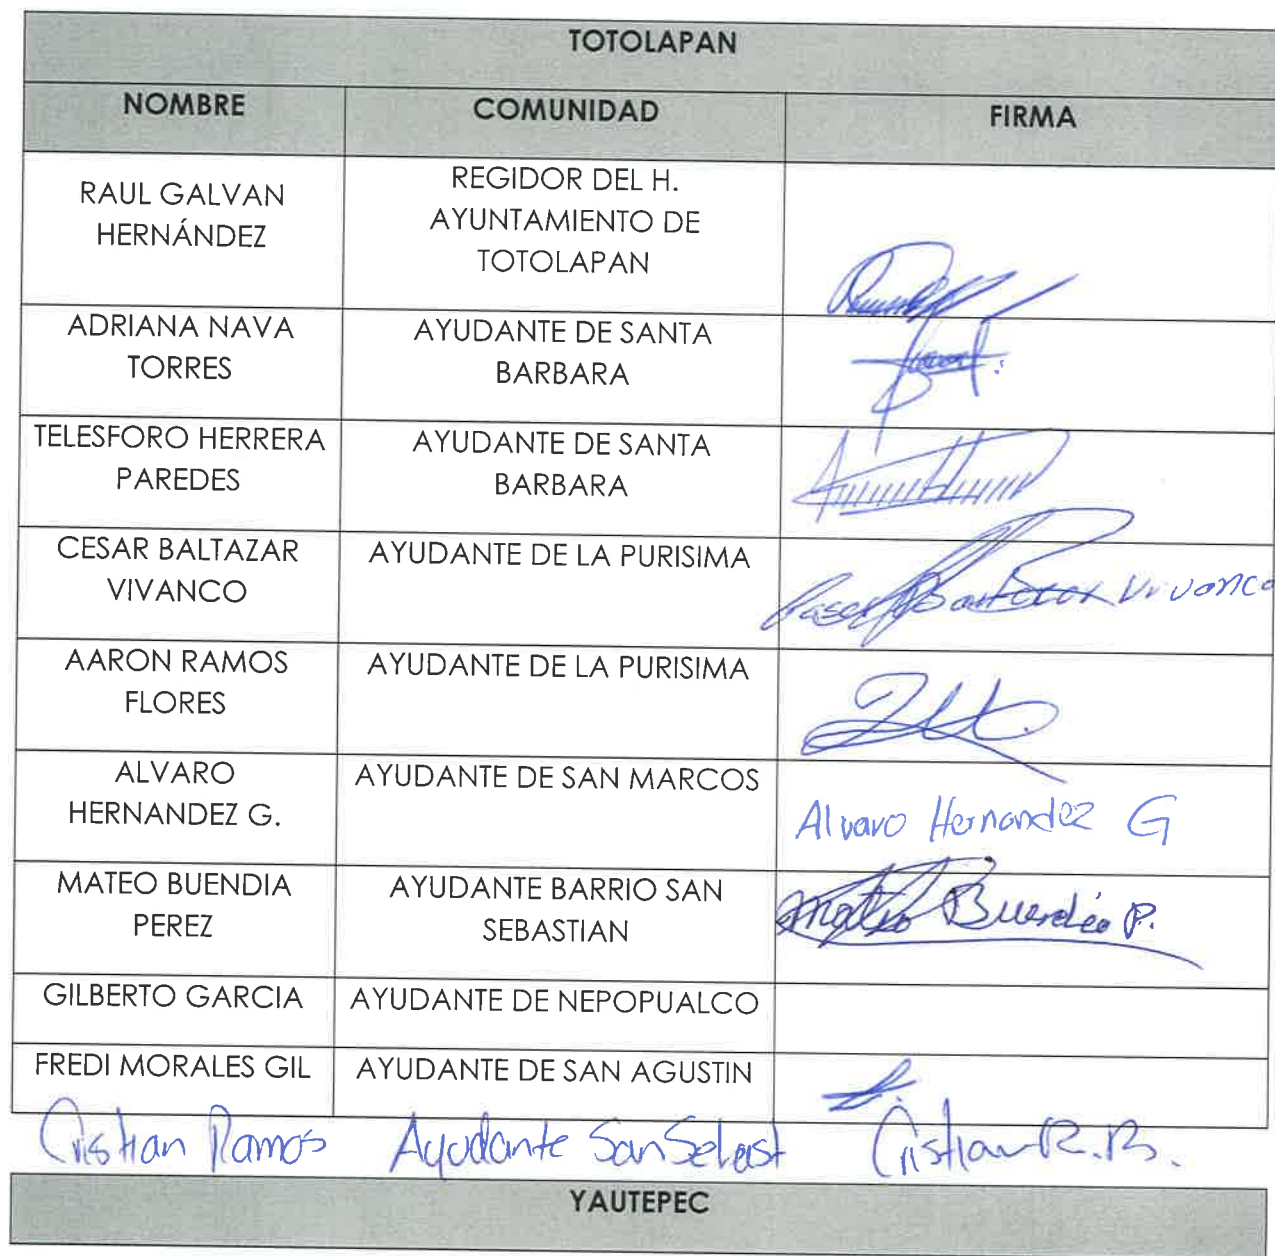 TOTOLAPAN
NOMBRE COMUNIDAD FIRMA
RAUL GALVAN
HERNÁNDEZ
REGIDOR DEL H.
AYUNTAMIENTO DE
TOTOLAPAN
ADRIANA NAVA
TORRES
AYUDANTE DE SANTA
BARBARA
TELESFORO HERRERA
PAREDES
AYUDANTE DE SANTA
BARBARA
CESAR BALTAZAR
VIVANCO
AYUDANTE DE LA PURISIMA
Vivanco
AARON RAMOS
FLORES
AYUDANTE DE LA PURISIMA
ALVARO
HERNANDEZ G.
AYUDANTE DE SAN MARCOS
Alvaro Hernandez G
MATEO BUENDIA
PEREZ
AYUDANTE BARRIO SAN
SEBASTIAN
Mateo Buendia P.
GILBERTO GARCIA
AYUDANTE DE NEPOPUALCO
FREDI MORALES GIL
AYUDANTE DE SAN AGUSTIN
Cristian Ramos Ayudante San Sebast Cristian R.B.
YAUTEPEC